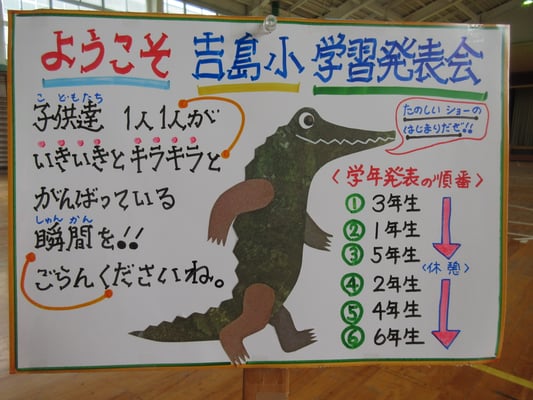 ようこそ 吉島小 学習発表会
こ ども たち
子供達 1人1人が
いきいきとキラキラと
がんばっている
しゅん かん
瞬間を!!
ごらんくださいね。
たのしい ショーの
はじまりだぜ!!
〈学年発表の順番〉
① 3年生
② 1年生
③ 5年生
〈休憩〉
④ 2年生
⑤ 4年生
⑥ 6年生